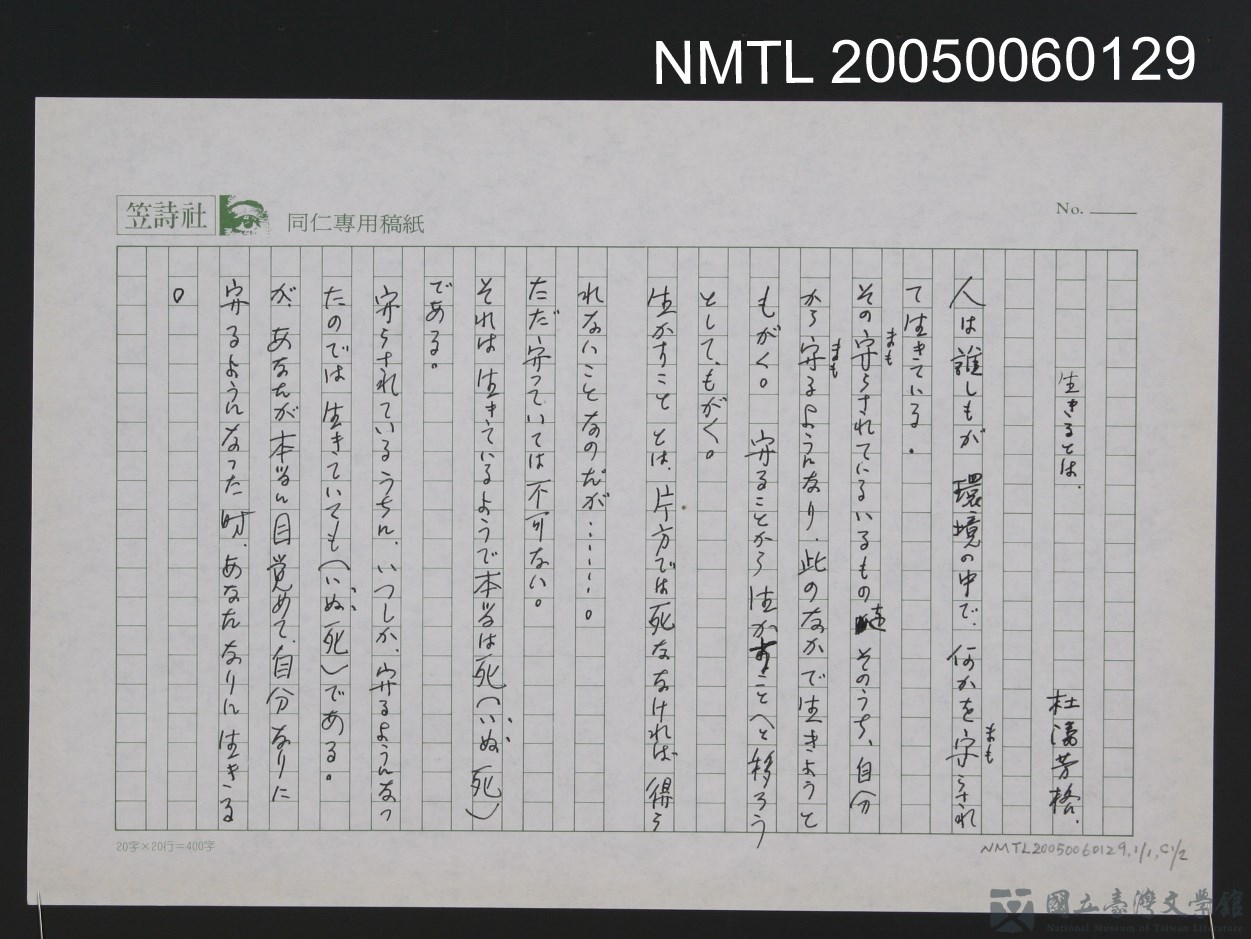 NMTL 20050060129
笠詩社 同仁專用稿紙
No.
生きるとは、
杜潘芳格、
人は誰しもが 環境の中で、何かを守らされ
まも
て生きている。
その守らされてにるいるもの達 そのうち、自分
まも
から守るようになり、此のなかで生きようと
まも
もがく。 守ることから 生かすことへと移ろう
として、もがく。
生かすこと とは、片方では死ななければ 得ら
れないことなのだが……。
ただ 守っていては 不可ない。
それは 生きているようで本当は死(いぬ 死)
である。
守らされているうちに、いつしか、守るようになっ
たのでは 生きていても(いぬ 死)である。
が、あなたが本当に目覚めて、自分なりに
守るようになった時、あなたなりに 生きる
。
20字×20行=400字
NMTL20050060129,1/1,C1/2
國立臺灣文學館
National Museum of Taiwan Literature